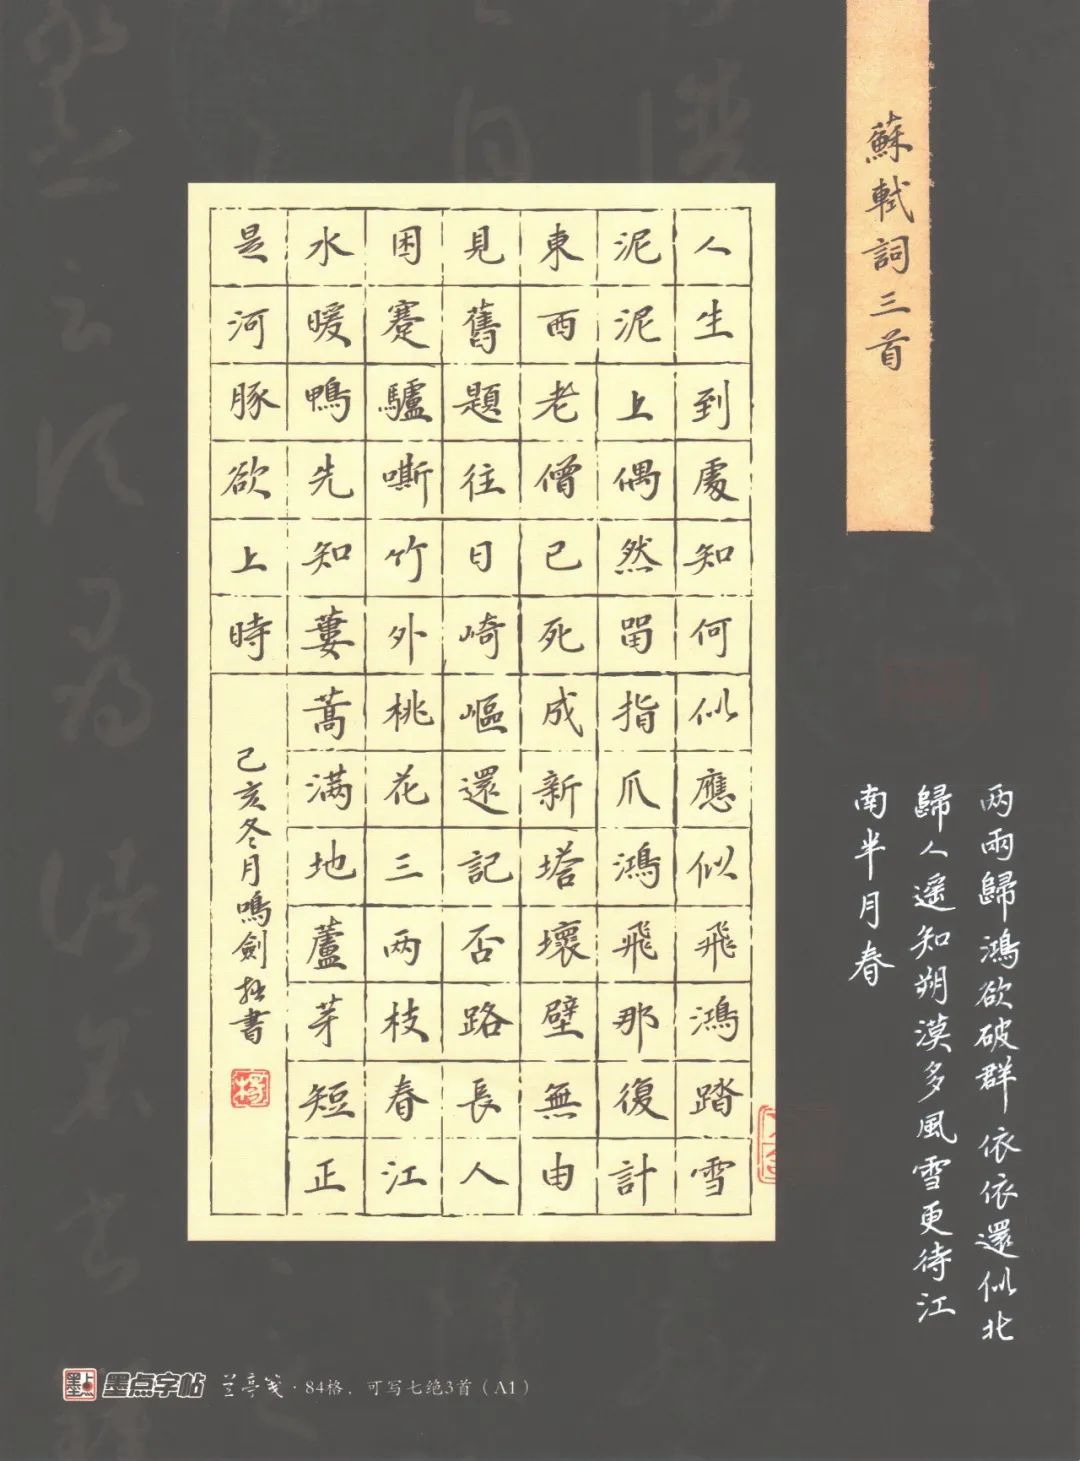 蘇軾詞三首
人生到處知何似應似飛鴻踏雪
泥泥上偶然畱指爪鴻飛那復計
東西老僧已死成新塔壞壁無由
見舊題往日崎嶇還記否路長人
困蹇驢嘶竹外桃花三两枝春江
水暖鴨先知蔞蒿满地蘆芽短正
是河豚欲上時
己亥冬月鳴劍拙書
两兩歸鴻欲破群依依還似北
歸人遥知朔漠多風雪更待江
南半月春
墨点字帖 兰亭笺·84格，可写七绝3首（A1）